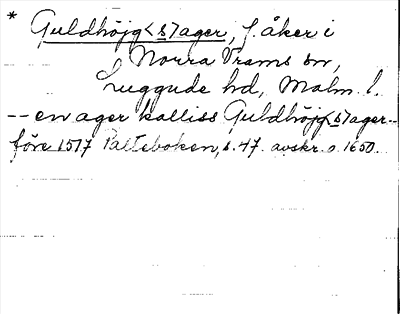 * Guldhöjg<s>ager, f. åker i
Norra Vrams sn,
Luggude hd, Malm. l.
-- en ager kalliss Guldhöjg<s>ager --
före 1517 Palteboken, s. 47. avskr. o. 1650.